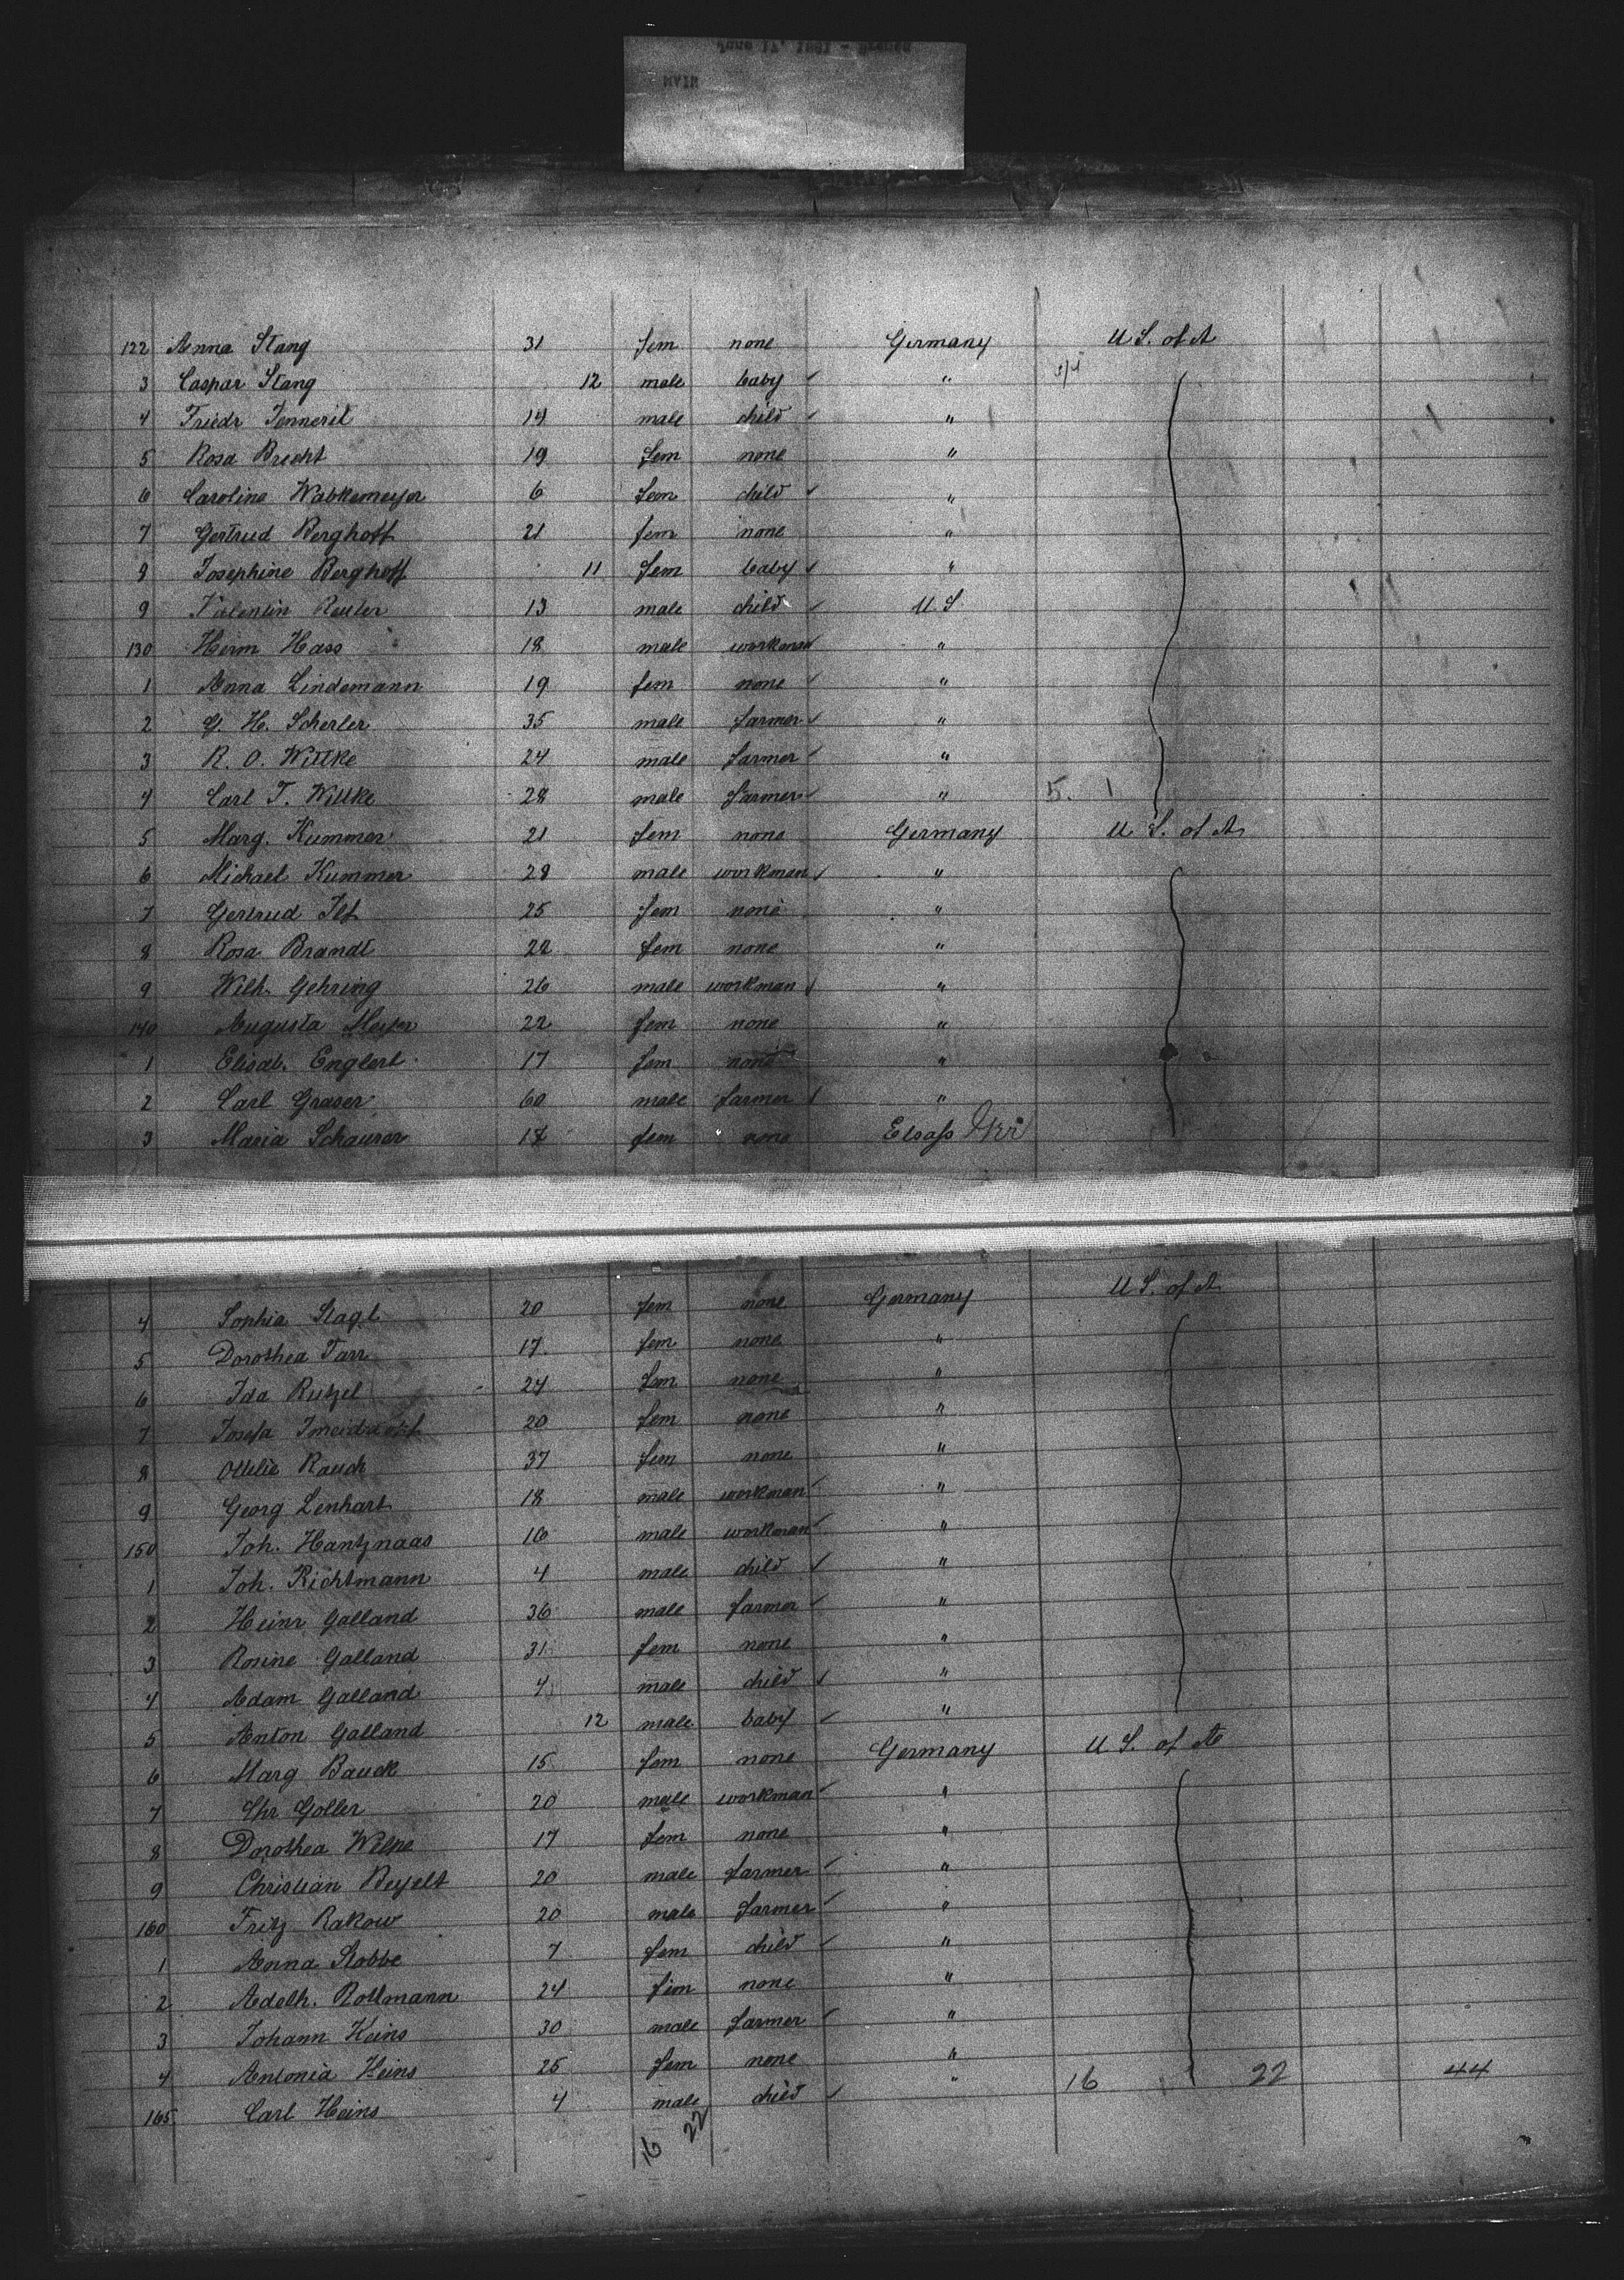 June 17, 1881 - Bremen
MAIN
122 Anna Stang 31 fem none Germany U.S. of A
3 Caspar Stang 12 male baby "
4 Friedr 14 male child "
5 Rosa Brecht 19 fem none "
6 Caroline Wabkemeyer 6 fem child "
7 Gertrud Berghoff 21 fem none "
8 Josephine Berghoff 11 fem baby "
9 Valentin Reuter 13 male child U.S.
130 Herm Hass 18 male workman "
1 Anna Lindemann 19 fem none "
2 G. H. Scherler 35 male farmer "
3 R. O. Wittke 24 male farmer "
4 Carl T. Wittke 28 male farmer " 5. 1
5 Marg. Kummer 21 fem none Germany U.S. of A
6 Michael Kummer 28 male workman "
7 Gertrud 25 fem none "
8 Rosa Brandt 22 fem none "
9 Wilh. Gehring 26 male workman "
140 Augusta Meyer 22 fem none "
1 Elisab. Englert 17 fem none "
2 Carl Graser 60 male farmer "
3 Maria Schaurer 18 fem none Elsass
4 Sophia Stagl 20 fem none Germany U.S. of A
5 Dorothea Tarr 17 fem none "
6 Ida Rutzel 24 fem none "
7 Josefa 20 fem none "
8 Ottelie Rauch 37 fem none "
9 Georg Lenhart 18 male workman "
150 Joh. Hantznaas 16 male workman "
1 Joh. Richtmann 4 male child "
2 Heinr Galland 36 male farmer "
3 Rosine Galland 31 fem none "
4 Adam Galland 4 male child "
5 Anton Galland 12 male baby "
6 Marg Bauck 15 fem none Germany U.S. of A
7 Chr Goller 20 male workman "
8 Dorothea Welpe 17 fem none "
9 Christian Beyelt 20 male farmer "
160 Fritz Rakow 20 male farmer "
1 Anna Stobbe 7 fem child "
2 Adelh. Rottmann 24 fem none "
3 Johann Heins 30 male farmer "
4 Antonia Heins 25 fem none "
165 Carl Heins 4 male child " 16 22 44
16 22